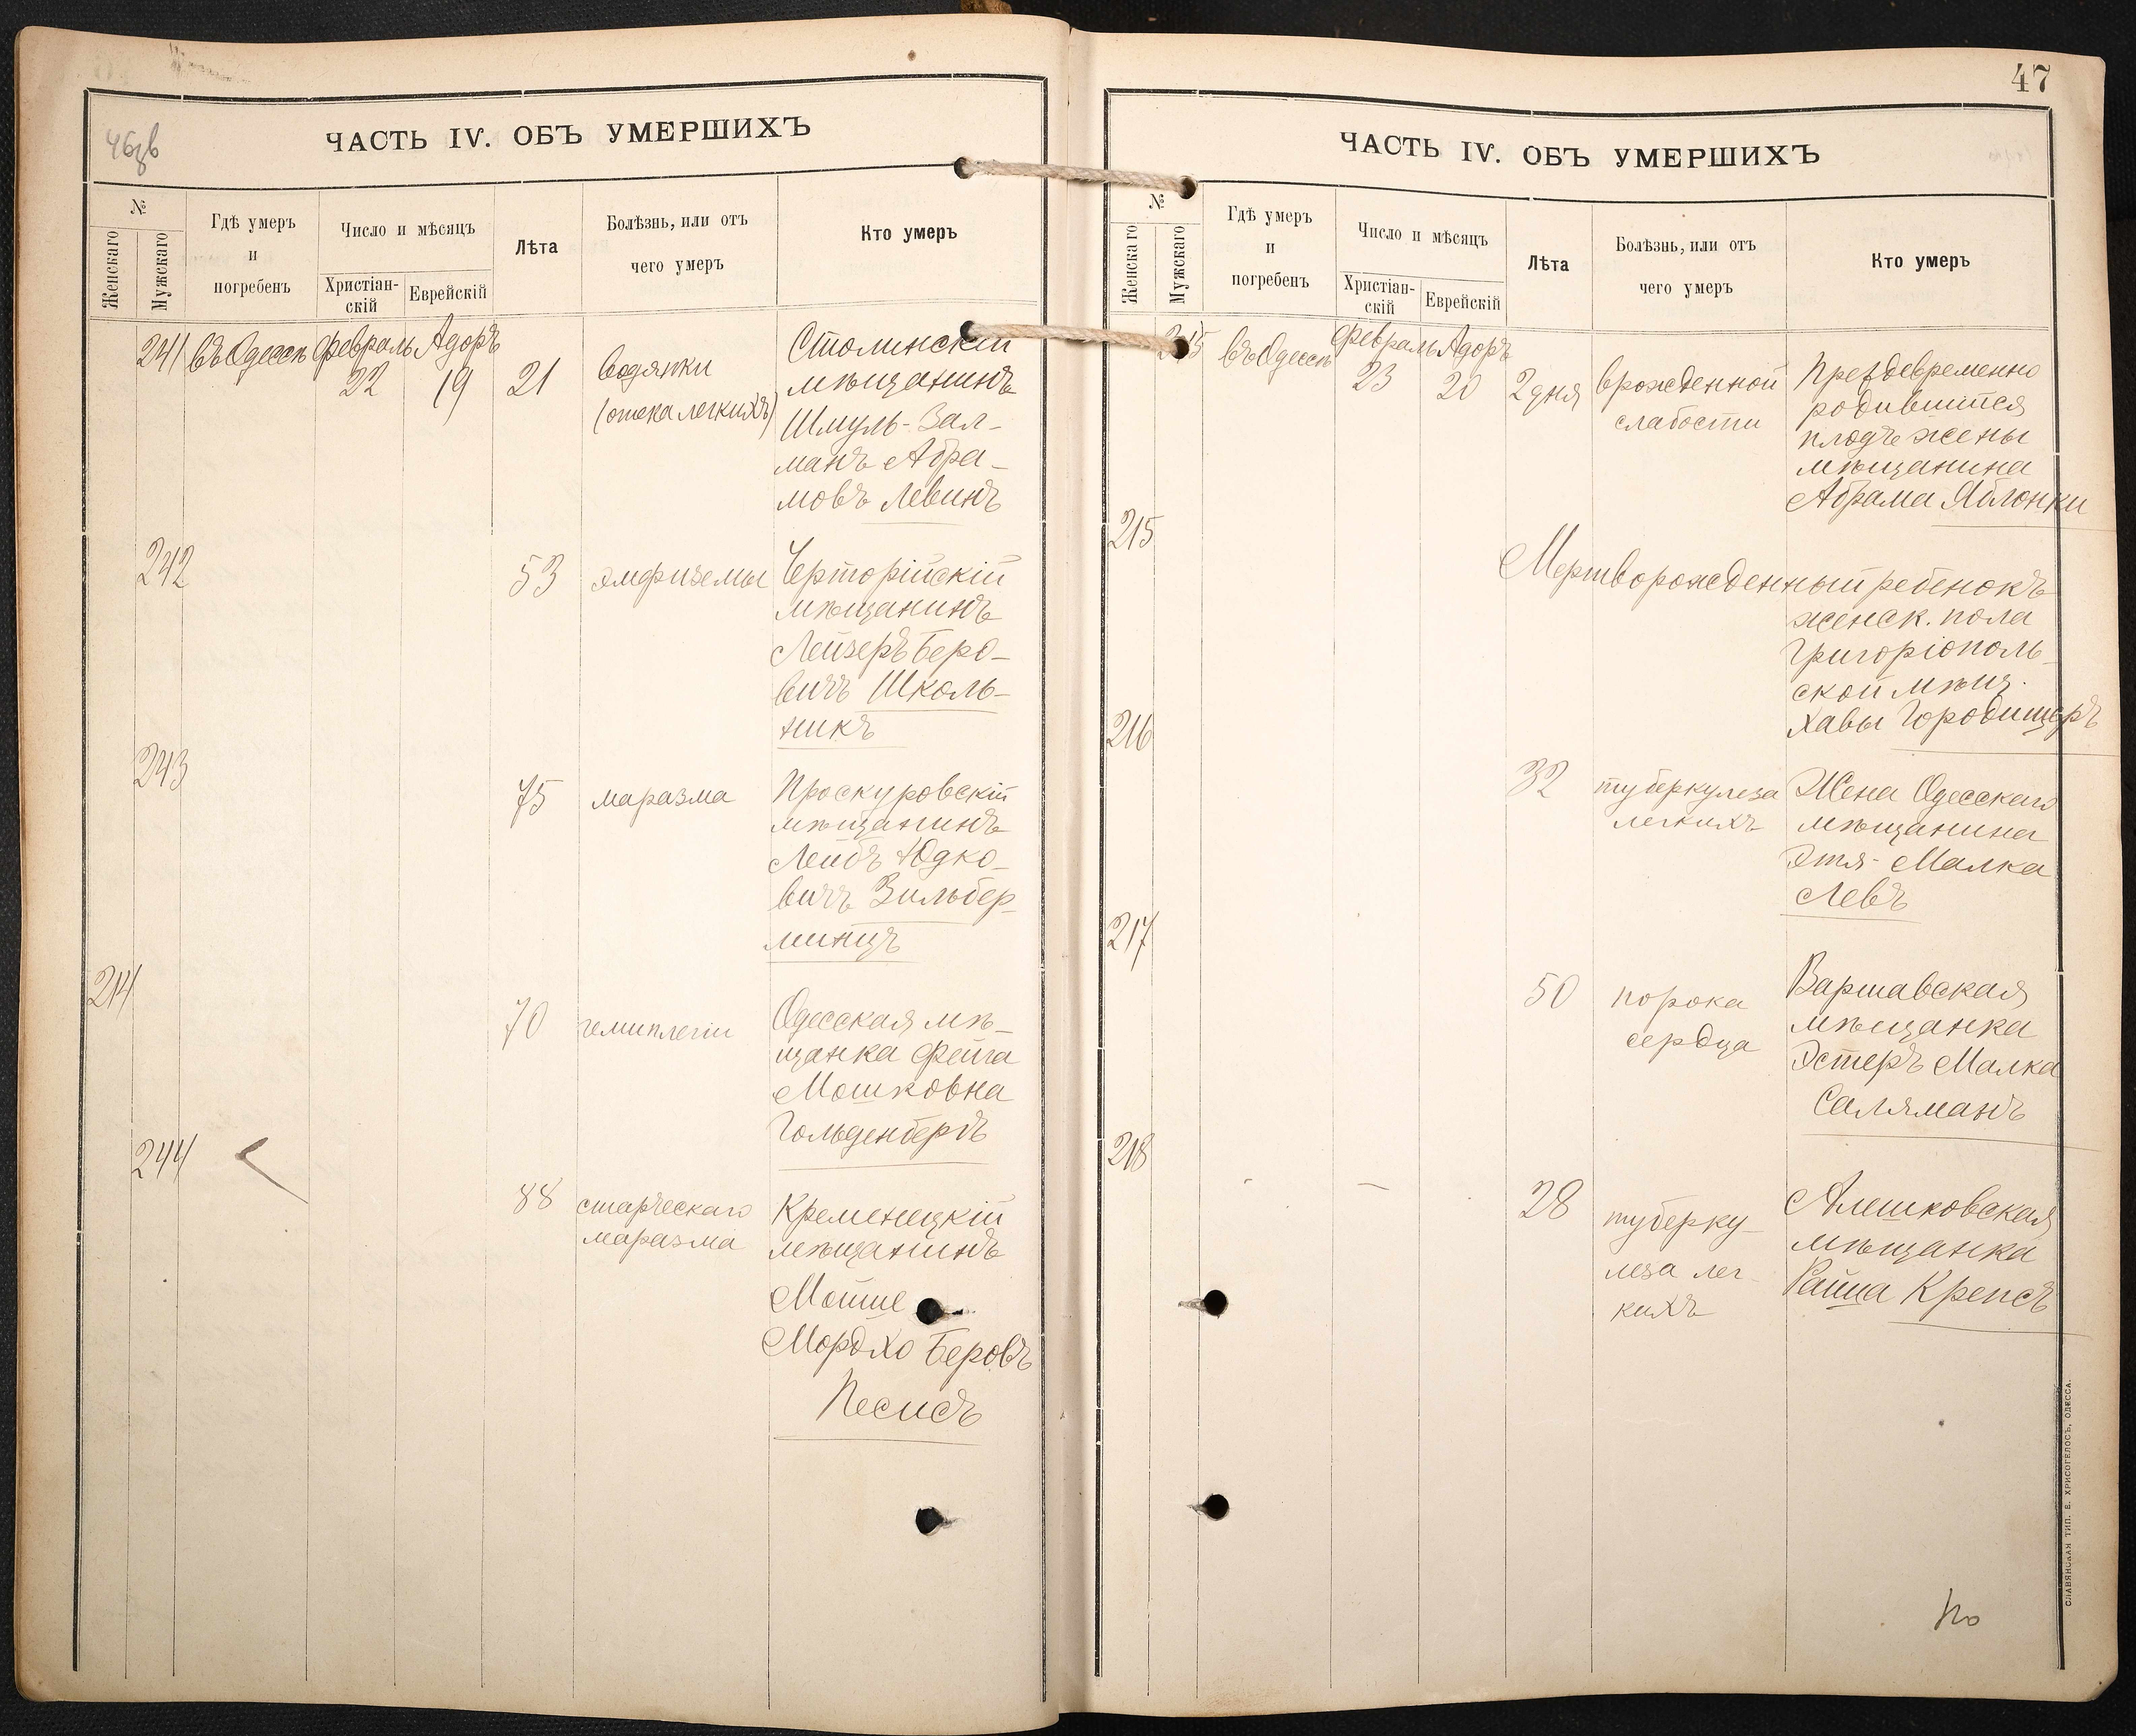 46зв
ЧАСТЬ IV. ОБЪ УМЕРШИХЪ
№
Женскаго
Мужскаго
Гдѣ умеръ
и
погребенъ
Число и мѣсяцъ
Христіан-
скій
Еврейскій
Лѣта
Болѣзнь, или отъ
чего умеръ
Кто умеръ
241 въ Одессѣ Февраль Адоръ
22 19 21
водянки
(отека легкихъ)
Столинскій
мѣщанинъ
Шмуль-Зал-
манъ Абра-
мовъ Левинъ
242
53 эмфиземы
Черторійскій
мѣщанинъ
Лейзеръ Беро-
вичъ Школь-
никъ
243
75 маразма
Проскуровскій
мѣщанинъ
Лейбъ Юдко-
вичъ Зильбер-
минцъ
214
70 гемиплегіи
Одесская мѣ-
щанка Фейга
Мошковна
Гольденбергъ
244
88 старческаго
маразма
Кременецкій
мѣщанинъ
Мойше
Мордхо Беровъ
Песисъ
47
ЧАСТЬ IV. ОБЪ УМЕРШИХЪ
№
Женскаго
Мужскаго
Гдѣ умеръ
и
погребенъ
Число и мѣсяцъ
Христіан-
скій
Еврейскій
Лѣта
Болѣзнь, или отъ
чего умеръ
Кто умеръ
въ Одессѣ Февраль Адоръ
23 20 2 дня
врожденной
слабости
Преждевременно
родившійся
плодъ жены
мѣщанина
Абрама Яблонки
215
Мертворожденный ребенокъ
женск. пола
Григоріополь-
ской мѣщ.
Хавы Городищеръ
216
32 туберкулеза
легкихъ
Жена Одесскаго
мѣщанина
Этя-Малка
Левъ
217
50 порока
сердца
Варшавская
мѣщанка
Эстеръ Малка
Саляманъ
218
28 туберку-
леза лег-
кихъ
Алешковская
мѣщанка
Райца Крепсъ
По
СЛАВЯНСКАЯ ТИП. Е. ХРИСОГЕЛОСЪ, ОДЕССА.